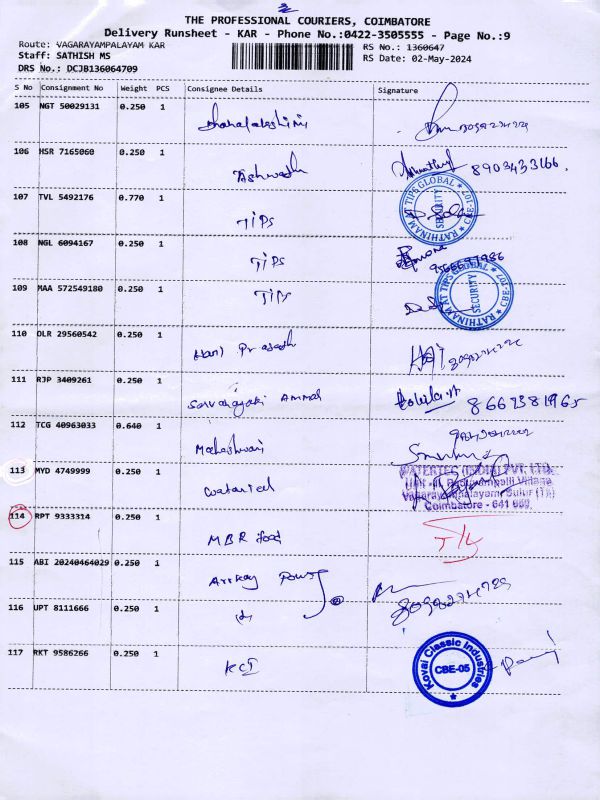 THE PROFESSIONAL COURIERS, COIMBATORE
Delivery Runsheet - KAR - Phone No.:0422-3505555 - Page No.:9
Route: VAGARAYAMPALAYAM KAR
RS No.: 1360647
Staff: SATHISH MS
RS Date: 02-May-2024
DRS No.: DCJB136064709
S No Consignment No Weight PCS Consignee Details Signature
105 NGT 50029131 0.250 1
106 HSR 7165060 0.250 1 Aishwarth 8903433166.
107 TVL 5492176 0.770 1 TIPS
RATHINAM AT TIPS GLOBAL * CBE-107 * SECURITY
108 NGL 6094167 0.250 1 TIPS
109 MAA 572549180 0.250 1 TIPS
RATHINAM AT TIPS GLOBAL * CBE-107 * SECURITY
110 DLR 29560542 0.250 1 Hari Prasath Hari
111 RJP 3409261 0.250 1 Sarvanayaki Ammal 8667381965
112 TCG 40963033 0.640 1 Maheshwari
113 MYD 4749999 0.250 1 Watertech
WATERTEC (INDIA) PVT. LTD.
Vagarayampalayam, Sulur (Tk)
Coimbatore - 641 659.
114 RPT 9333314 0.250 1 MBR food
115 ABI 20240464029 0.250 1
116 UPT 8111666 0.250 1
117 RKT 9586266 0.250 1 KCI
Kovai Classic Industries * CBE-05